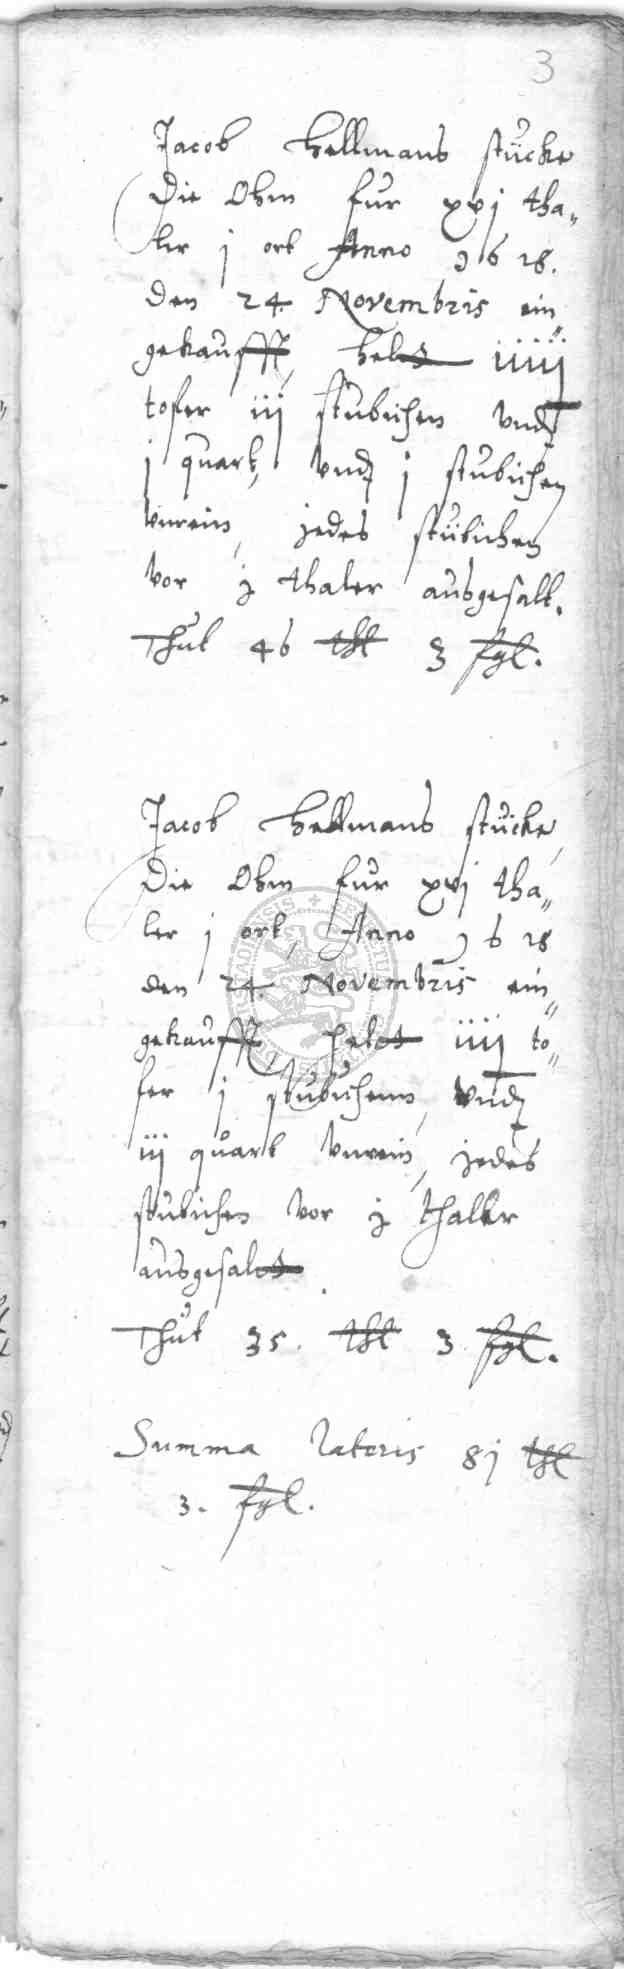 3
Jacob Hellmans stücke
Die Ohm fur xvj tha„
ler j ort Anno 1618.
den 24. Novembris ein„
gekaufft, helt iiiij
tofer iij stubichen vnd
j quart, vnd j stubichen
vnrein, jedes stübichen
vor j thaler ausgesalt.
Thut 46 thl 3 fgl.
Jacob Hellmans stücke,
Die Ohm fur xvj tha„
ler j ort, Anno 1618
den 24. Novembris ein„
gekaufft, helt iiij to„
fer j stubichenn, vnd
iij quart vnrein, jedes
stubichen vor j thaler
ausgesalt.
Thut 35. thl 3. fgl.
Summa lateris 81 thl
3. fgl.